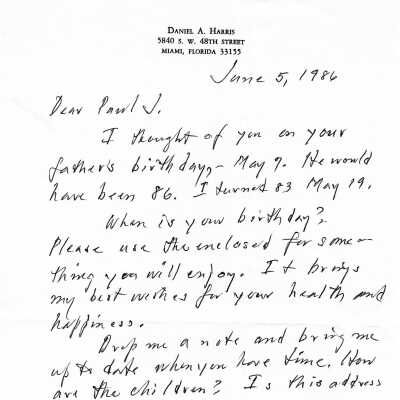 DANIEL A. HARRIS
5840 S. W. 48TH STREET
MIAMI, FLORIDA 33155
June 5, 1986
Dear Paul J.
I thought of you on your
father's birthday,- May 7. He would
have been 86. I turned 83 May 19.
When is your birthday?
Please use the enclosed for some-
thing you will enjoy. It brings
my best wishes for your health and
happiness.
Drop me a note and bring me
up to date when you have time. How
are the children? Is this address